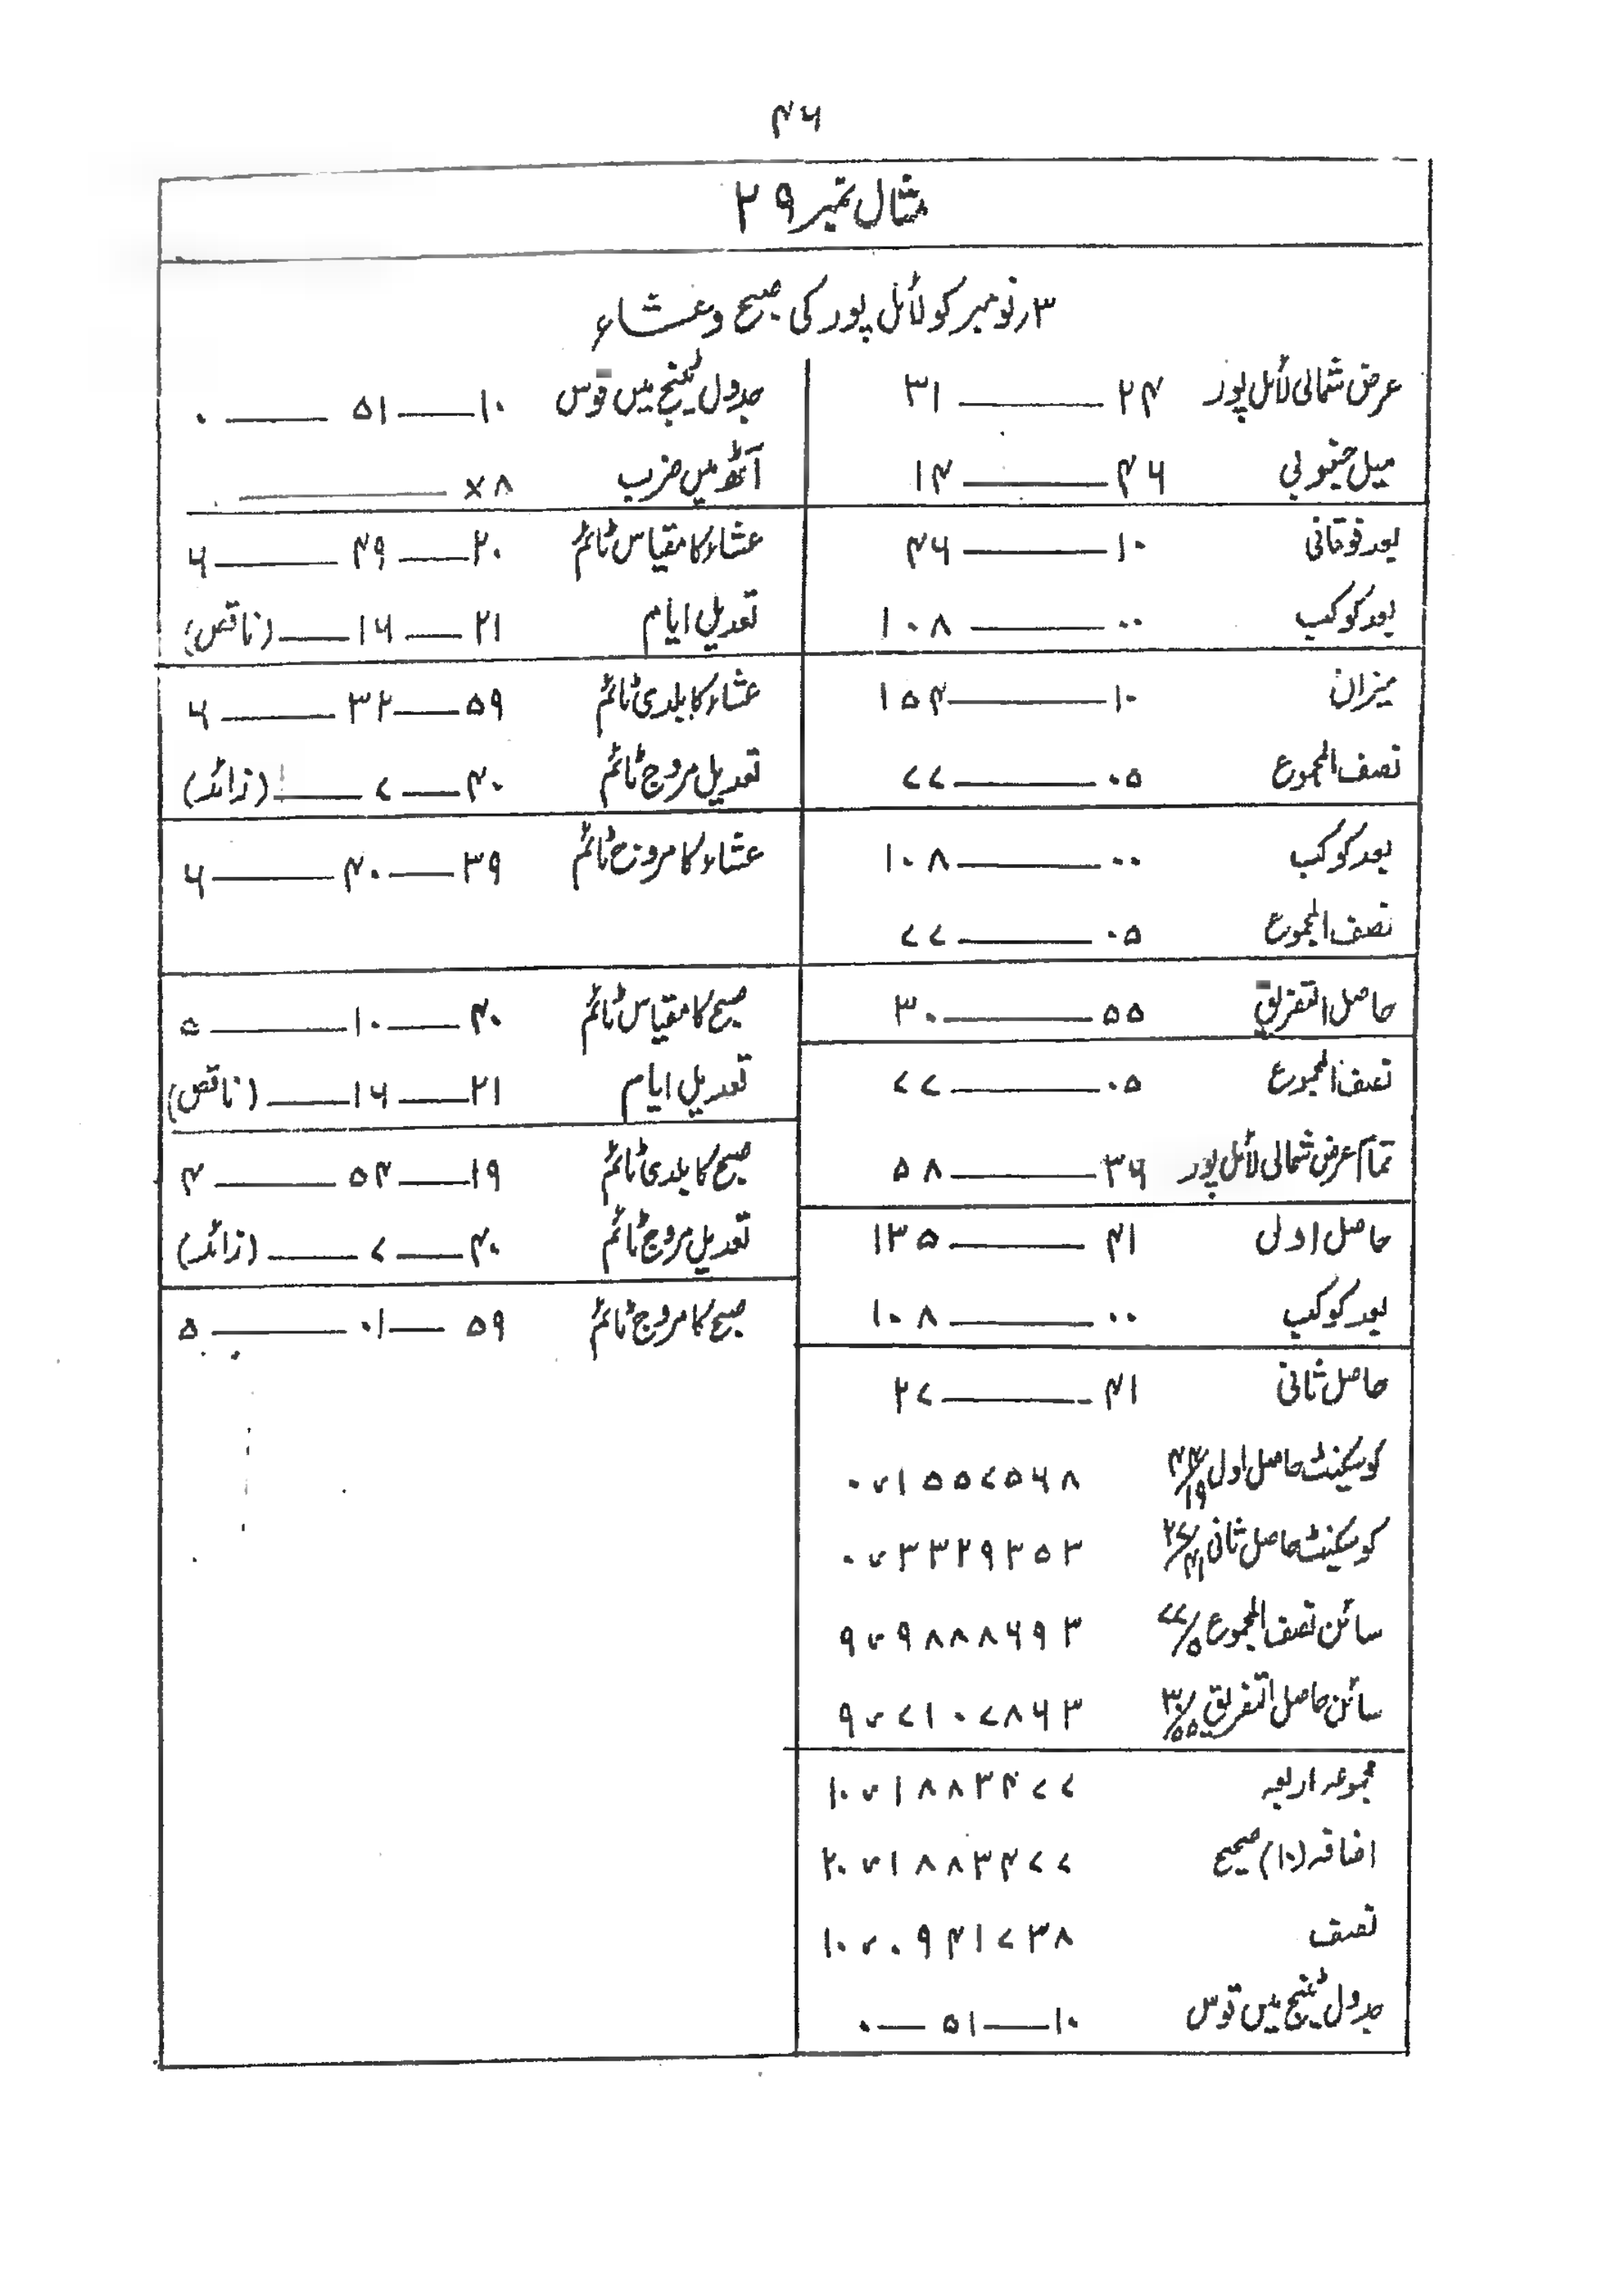 ۴۶
مثال نمبر ۲۹
۳ رنومبر کو لائل پور کی صبح وعشاء
عرض شمالی لائل پور ۲۴ — ۳۱
میل جنوبی ۴۶ — ۱۴
بعد فوقانی ۱۰ — ۴۶
بعد کوکب ۰۰ — ۱۰۸
میزان ۱۰ — ۱۵۴
نصف المجموع ۰۵ — ۷۷
بعد کوکب ۰۰ — ۱۰۸
نصف المجموع ۰۵ — ۷۷
حاصل التفریق ۵۵ — ۳۰
نصف المجموع ۰۵ — ۷۷
تمام عرض شمالی لائل پور ۳۶ — ۵۸
حاصل اولی ۴۱ — ۱۳۵
بعد کوکب ۰۰ — ۱۰۸
حاصل ثانی ۴۱ — ۲۷
کوسیکنٹ حاصل اول ۴۴/۱۹ ۰٫۱۵۵۷۵۶۸
کوسیکنٹ حاصل ثانی ۲۷/۴۱ ۰٫۳۳۲۹۳۵۳
سائن نصف المجموع ۷۷/۵ ۹٫۹۸۸۸۶۹۳
سائن حاصل التفریق ۳۰/۵۵ ۹٫۷۱۰۷۸۶۳
مجموعہ اربعہ ۱۰٫۱۸۸۳۴۷۷
اضافہ (۱۰) صحیح ۲۰٫۱۸۸۳۴۷۷
نصف ۱۰٫۰۹۴۱۷۳۸
جدول ٹینج میں قوس ۱۰ — ۵۱ — ۰
جدول ٹینج میں قوس ۱۰ — ۵۱ — ۰
آٹھ میں ضرب ۸×
عشاء کا مقیاس ٹائم ۲۰ — ۴۹ — ۶
تعدیل ایام ۲۱ — ۱۶ — (ناقص)
عشاء کا بلدی ٹائم ۵۹ — ۳۲ — ۶
تعدیل مروج ٹائم ۴۰ — ۷ — (زائد)
عشاء کا مروج ٹائم ۳۹ — ۴۰ — ۶
صبح کا مقیاس ٹائم ۴۰ — ۱۰ — ۵
تعدیل ایام ۲۱ — ۱۶ — (ناقص)
صبح کا بلدی ٹائم ۱۹ — ۵۴ — ۴
تعدیل مروج ٹائم ۴۰ — ۷ — (زائد)
صبح کا مروج ٹائم ۵۹ — ۰۱ — ۵